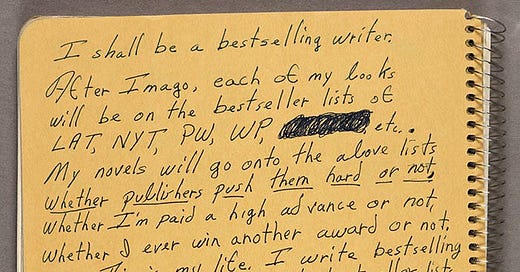 I shall be a bestselling writer.
After Imago, each of my books
will be on the bestseller lists of
LAT, NYT, PW, WP, etc.
My novels will go onto the above lists
whether publishers push them hard or not,
whether I'm paid a high advance or not,
whether I ever win another award or not.
This is my life. I write bestselling
bestseller lists